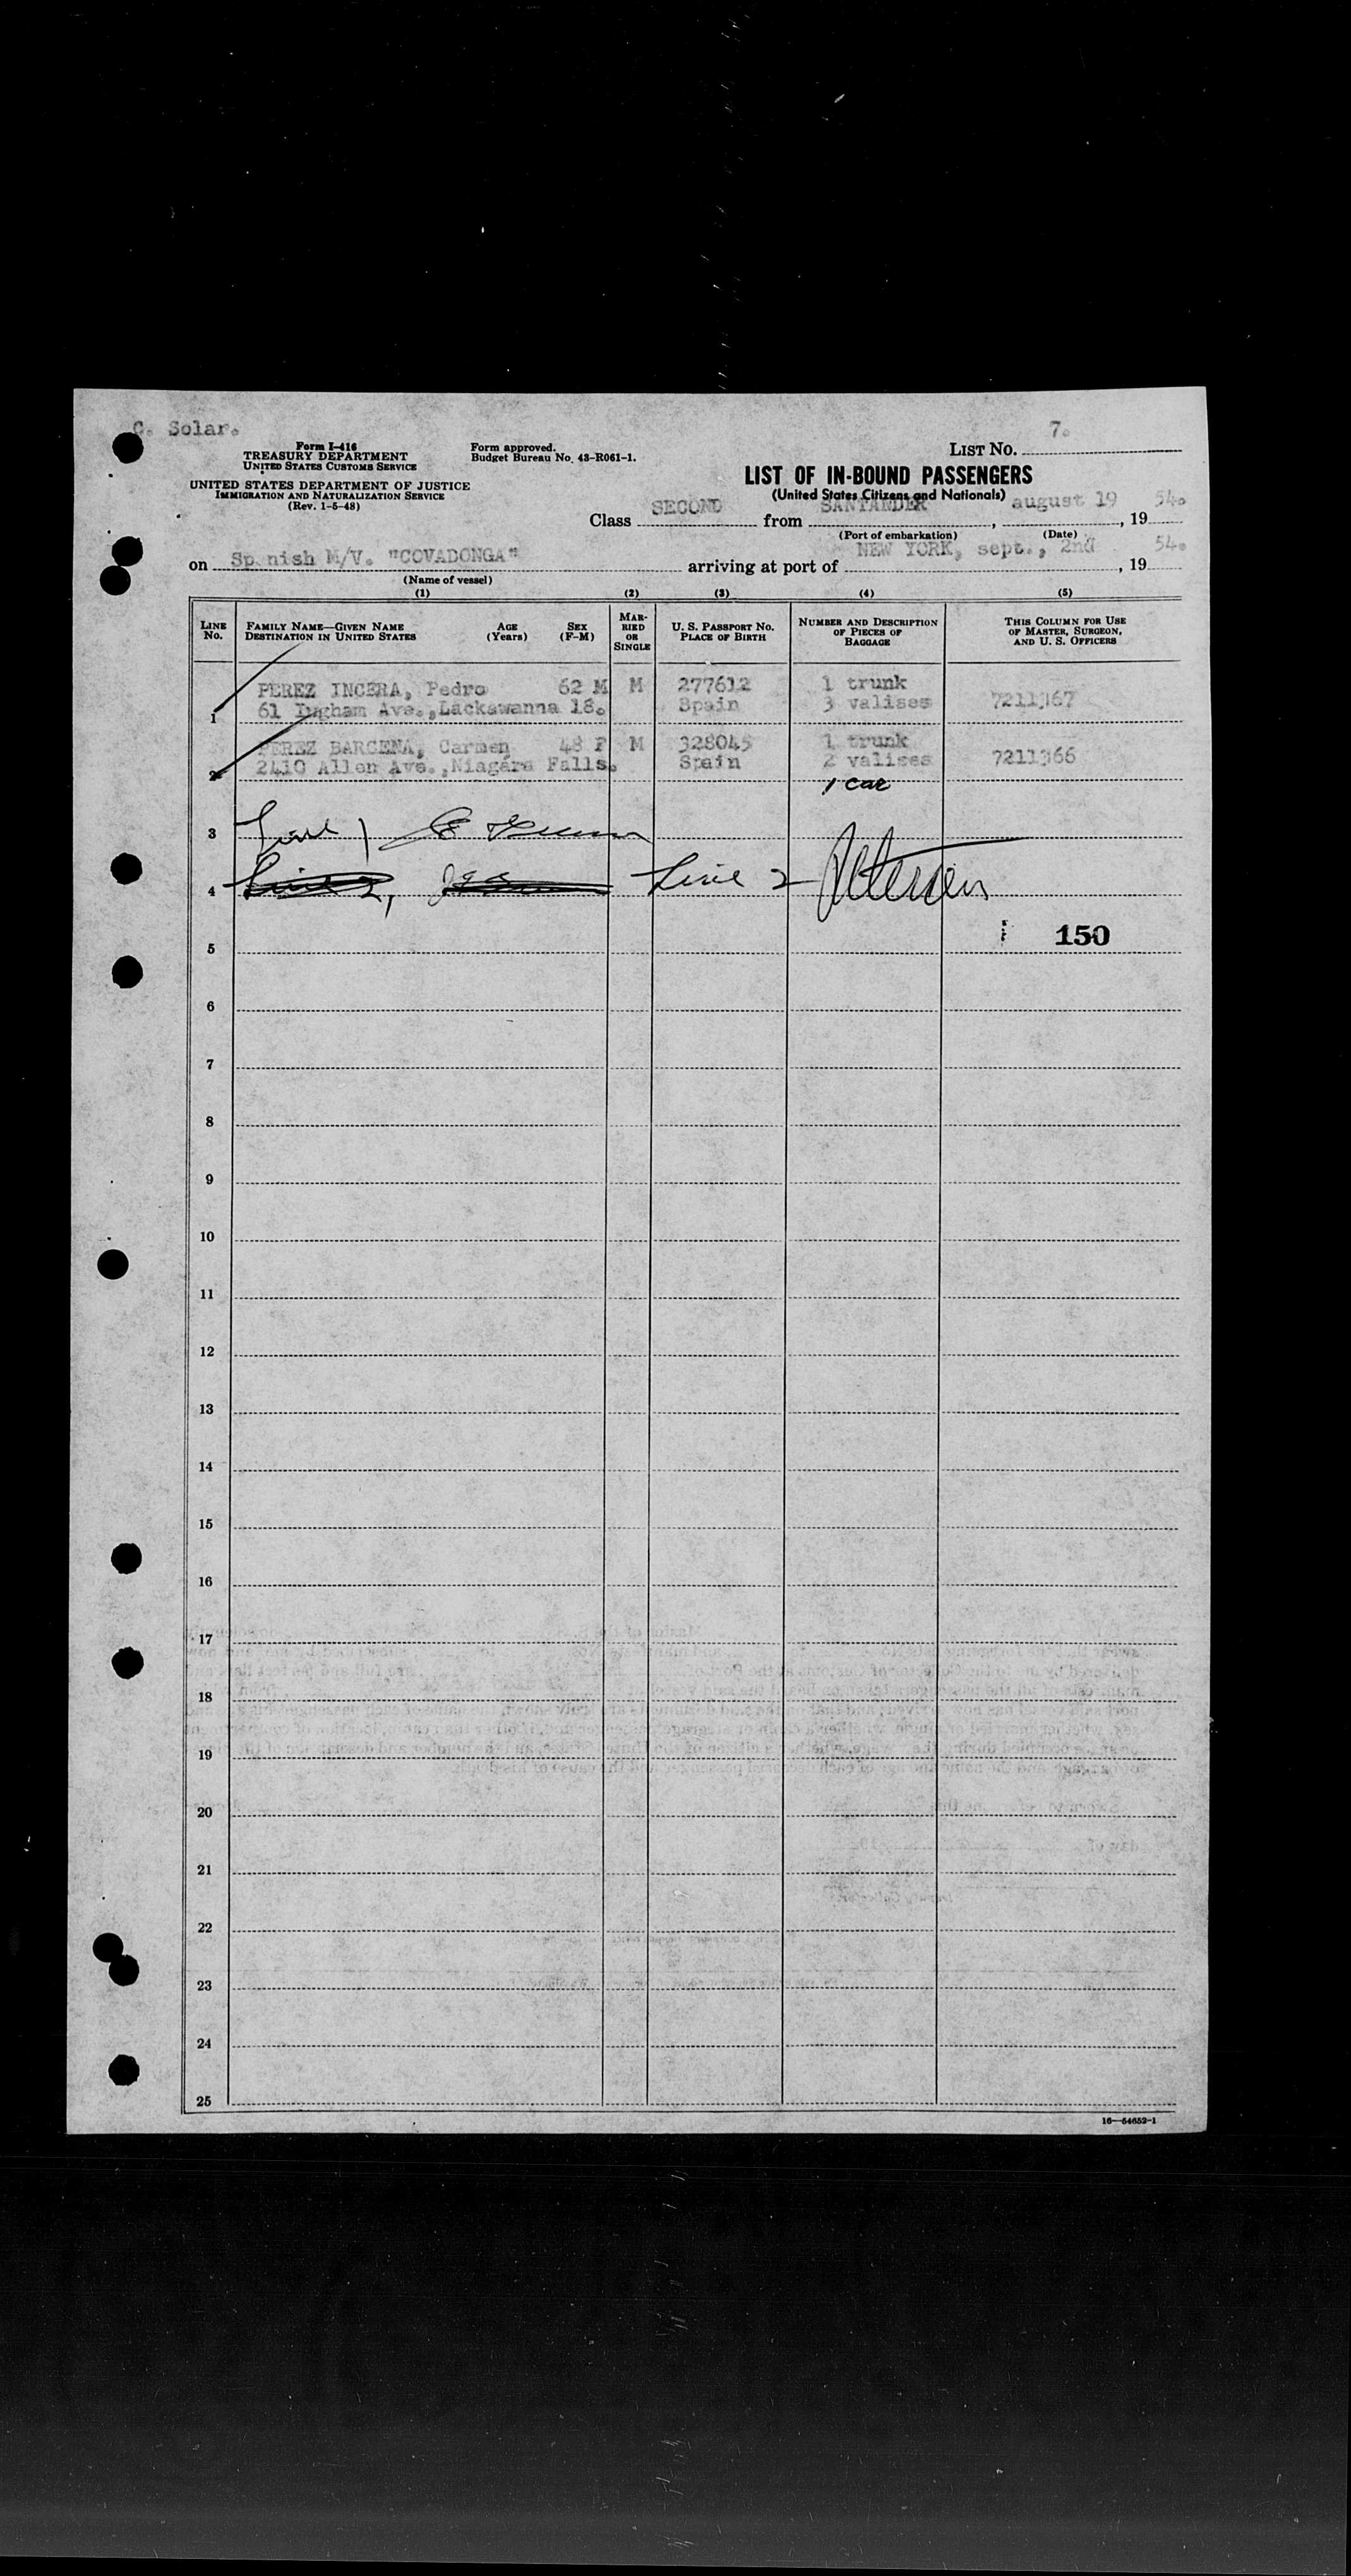 C. Solar.
7.
Form I-416
TREASURY DEPARTMENT
UNITED STATES CUSTOMS SERVICE
Form approved.
Budget Bureau No. 43-R061-1.
LIST NO.
UNITED STATES DEPARTMENT OF JUSTICE
IMMIGRATION AND NATURALIZATION SERVICE
(Rev. 1-5-48)
LIST OF IN-BOUND PASSENGERS
(United States Citizens and Nationals)
Class SECOND from SANTANDER, august 19, 1954.
(Port of embarkation) (Date)
on Sp nish M/V. "COVADONGA" arriving at port of NEW YORK, sept., 2nd, 1954.
(Name of vessel)
(1) (2) (3) (4) (5)
LINE NO.
FAMILY NAME—GIVEN NAME
DESTINATION IN UNITED STATES
AGE (Years)
SEX (F-M)
MARRIED OR SINGLE
U. S. PASSPORT NO.
PLACE OF BIRTH
NUMBER AND DESCRIPTION OF PIECES OF BAGGAGE
THIS COLUMN FOR USE OF MASTER, SURGEON, AND U. S. OFFICERS
PEREZ INCERA, Pedro 62 M M 277612 1 trunk
1 61 Ingham Ave., Lackawanna 18. Spain 3 valises 7211367
PEREZ BARCENA, Carmen 48 F M 328045 1 trunk
2 2410 Allen Ave., Niagara Falls. Spain 2 valises 7211366
1 car
3 Line 1
4 Line 2, Line 2
5 150
6
7
8
9
10
11
12
13
14
15
16
17
18
19
20
21
22
23
24
25
16—54652-1